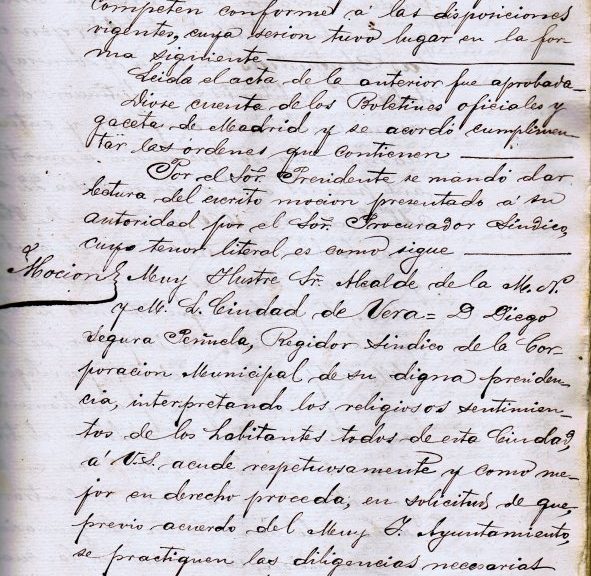 competen conforme á las disposiciones
vigentes, cuya sesion tuvo lugar en la for-
ma siguiente
Leida el acta de la anterior fue aprobada-
Diose cuenta de los Boletines oficiales y
gaceta de Madrid y se acordó cumplimen-
tar las ordenes que contienen
Por el Sor. Presidente se mandó dar
lectura del escrito mocion presentado á su
autoridad por el Sor. Procurador Sindico,
cuyo tenor literal es como sigue
Mocion Muy Ilustre Sr. Alcalde de la M. N.
y M. L. Ciudad de Vera= D Diego
Segura Peñuela, Regidor Sindico de la Cor-
poracion Municipal de su digna presiden-
cia, interpretando los religiosos sentimien-
tos de los habitantes todos de esta Ciudad,
á V.S. acude respetuosamente y como me-
jor en derecho proceda, en solicitud de que,
previo acuerdo del Muy I. Ayuntamiento,
se practiquen las diligencias necesarias